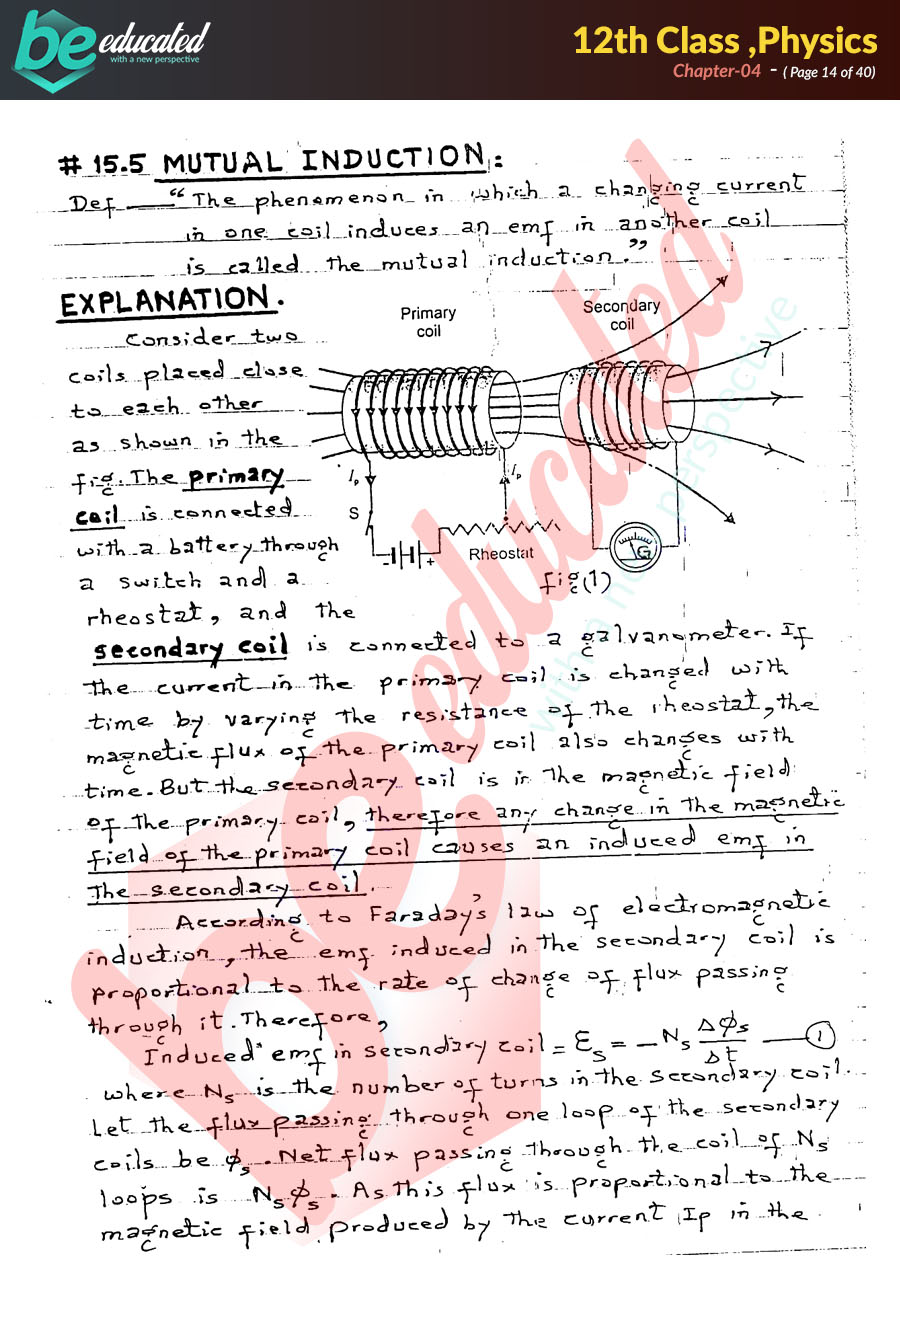 be educated
with a new perspective
12th Class ,Physics
Chapter-04 - ( Page 14 of 40)
# 15.5 MUTUAL INDUCTION :
Def — "The phenomenon in which a changing current
in one coil induces an emf in another coil
is called the mutual induction."
EXPLANATION.
Primary
coil
Secondary
coil
Consider two
coils placed close
to each other
as shown in the
fig. The primary
coil is connected
with a battery through
a switch and a
rheostat, and the
Ip
Ip
S
- +
Rheostat
G
fig(1)
secondary coil is connected to a galvanometer. If
the current in the primary coil is changed with
time by varying the resistance of the rheostat, the
magnetic flux of the primary coil also changes with
time. But the secondary coil is in the magnetic field
of the primary coil, therefore any change in the magnetic
field of the primary coil causes an induced emf in
the secondary coil.
According to Faraday's law of electromagnetic
induction, the emf induced in the secondary coil is
proportional to the rate of change of flux passing
through it. Therefore,
Induced emf in secondary coil = Ɛs = - Ns Δϕs/Δt — 1
where Ns is the number of turns in the secondary coil.
Let the flux passing through one loop of the secondary
coils be ϕs. Net flux passing through the coil of Ns
loops is Nsϕs. As this flux is proportional to the
magnetic field produced by the current Ip in the
be educated
with a new perspective